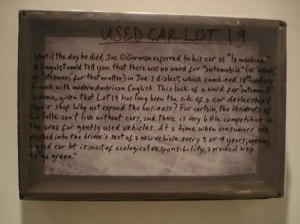 USED CAR LOT 19
Until the day he died, Joe O'Gorman referred to his car as "la machine."
A linguist would tell you that there was no word for "automobile" (or "truck"
or "steamer," for that matter) in Joe's dialect, which combined 18th century
French with modern American English. This lack of a word for automobile
is ironic, given that Lot 19 has long been the site of a car dealership &
repair shop. Why not expand the business? For certain, the residents of
La Salle can't live without cars, and there is very little competition in
the area for gently used vehicles. At a time when consumers are
pushed into the driver's seat of a new vehicle every 3 or 4 years, opening
a used car lot is most of ecological responsibility, a practical way
to go green."